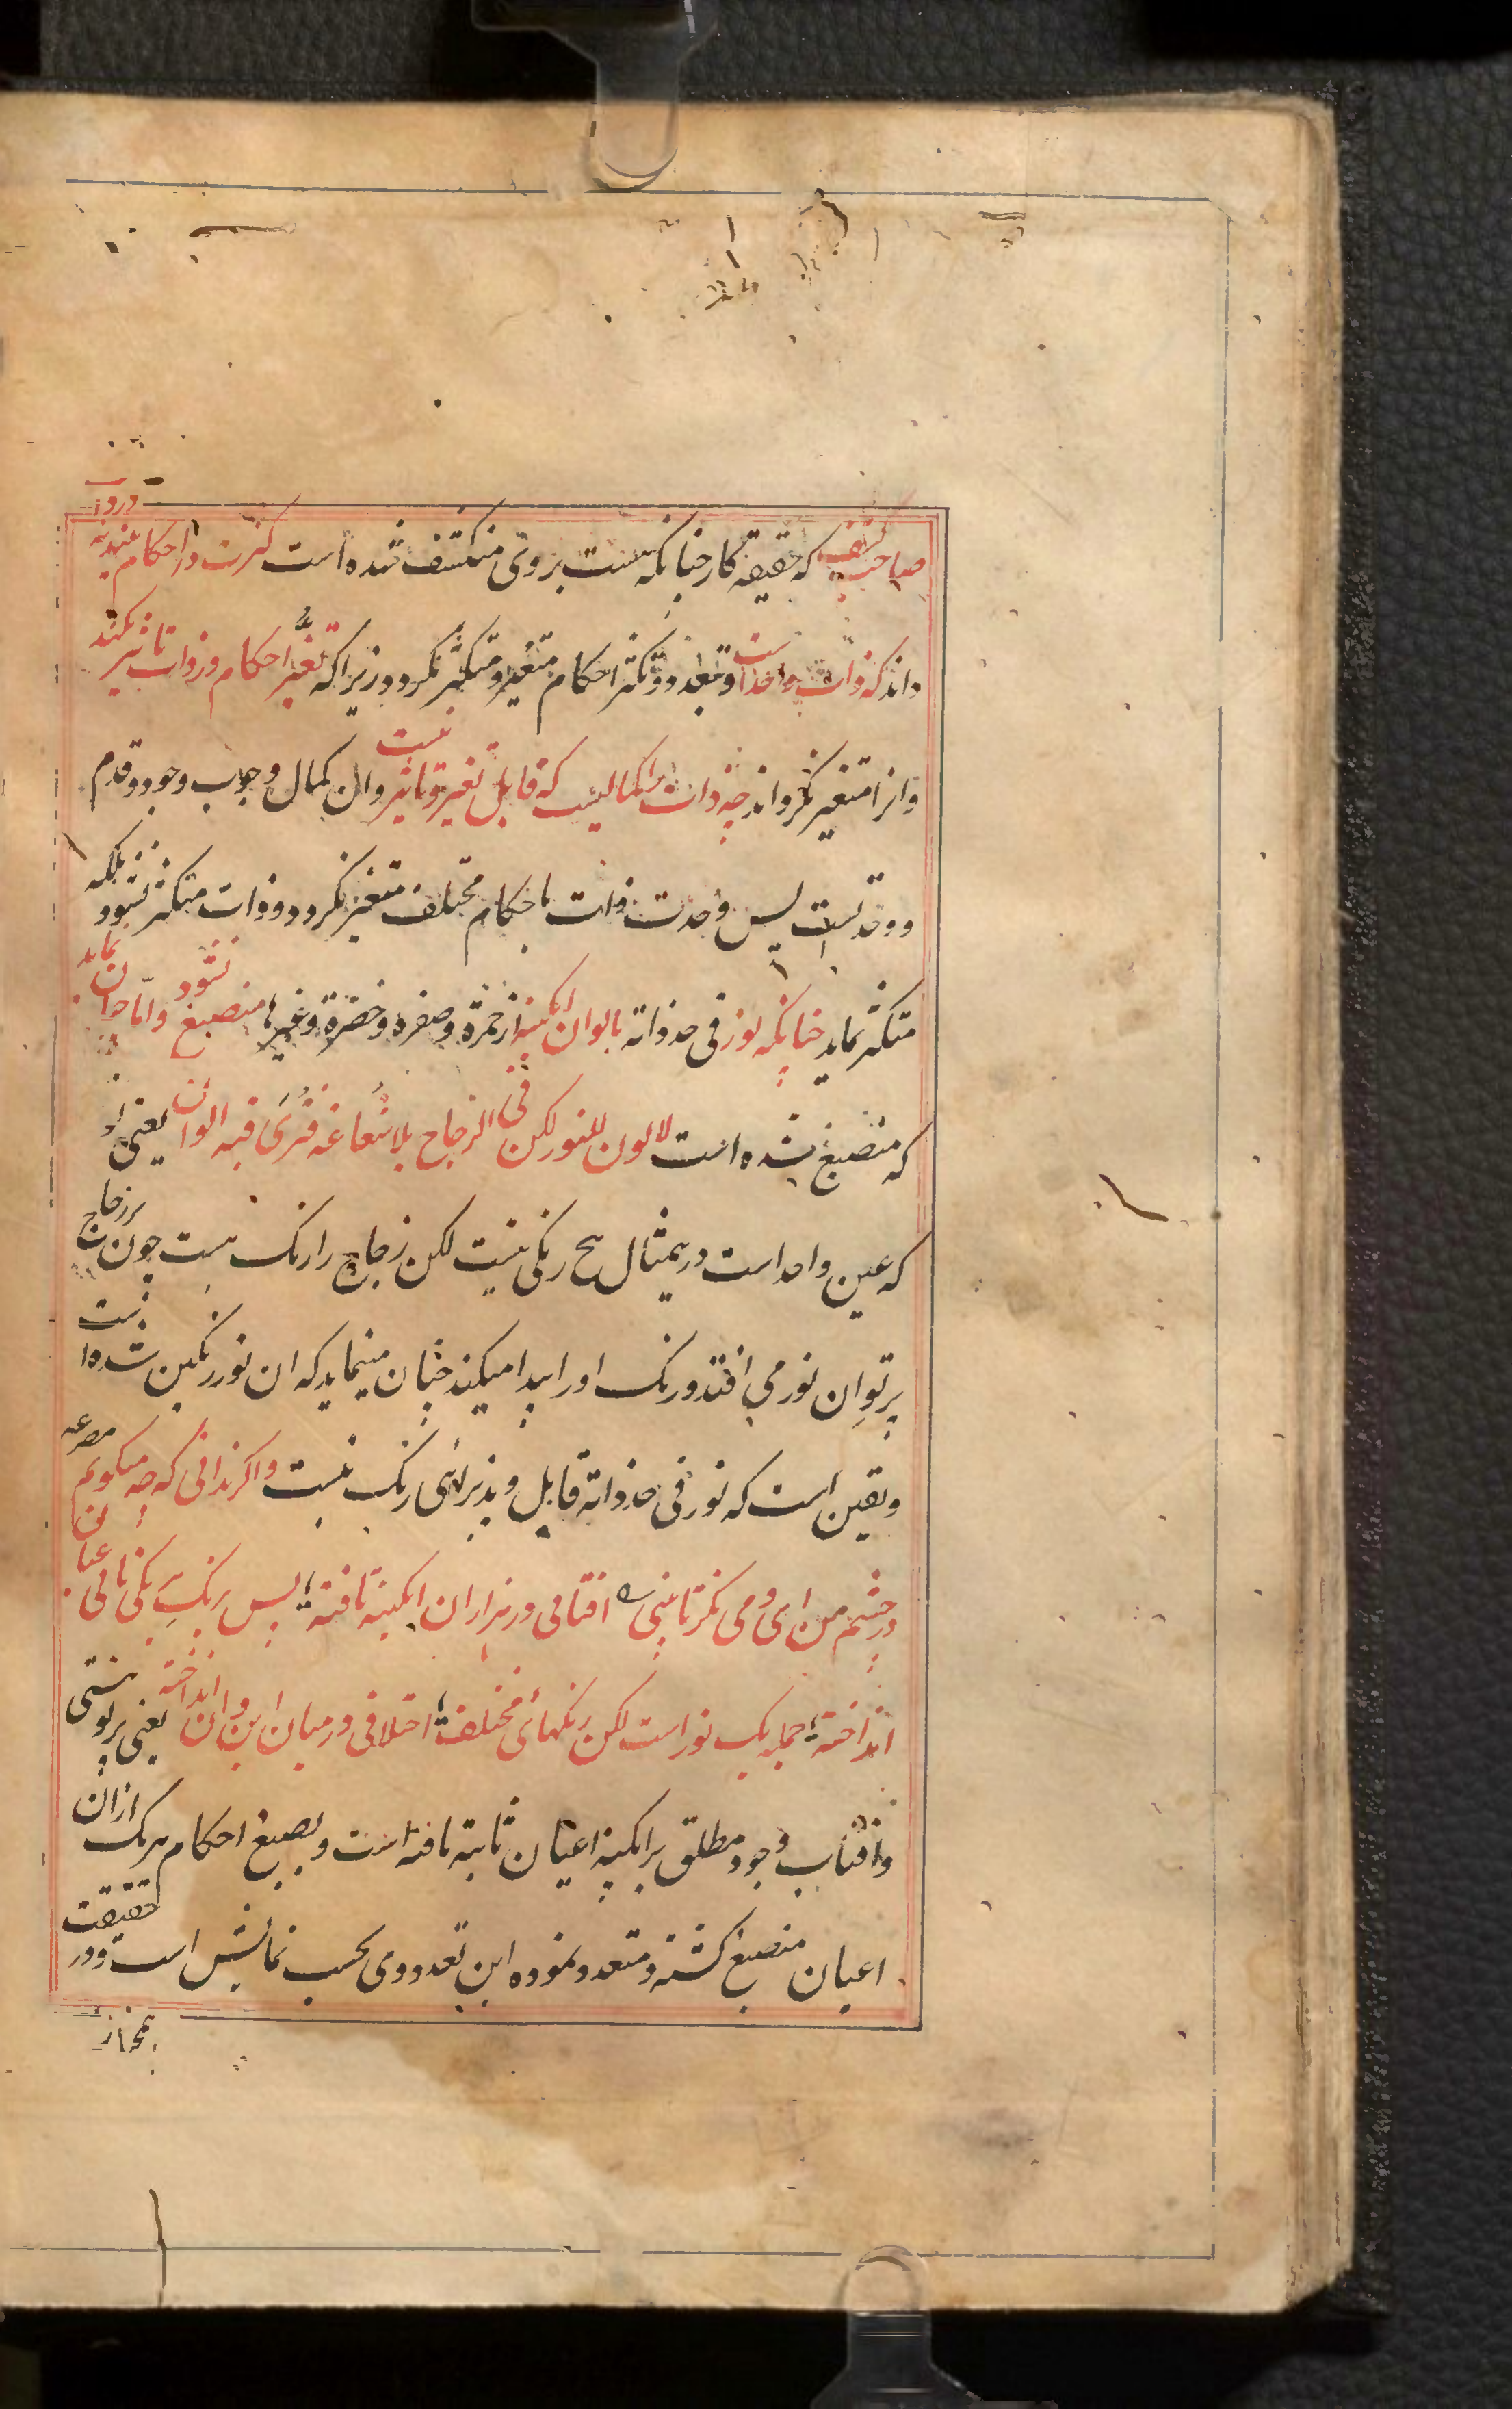 صاحب کشف که حقیقه کار چنانکه هست بر وی منکشف شده است کثرت در احکام بیند نه در ذات
داند که ذات واحد است و تعدد و تکثر احکام متغیر و متکثر نکردد زیرا که تغیر احکام در ذات تاثیر نکند
و انرا متغیر نکرداند چه ذات را کمالیست که قابل تغیر و تاثیر نیست و ان کمال وجوب وجود و قدم
و وحدتست پس وحدت ذات باحکام مختلف متغیر نکردد و ذات متکثر نشود بلکه
متکثر نماید چنانکه نور فی حد ذاته بالوان ابکینه از حمرة و صفره و خضرة و غیرها منصبغ نشود و اما چنان نماید
که منصبغ شده است لا لون للنور لکن فی الزجاج بدا شعاعه فترى فیه الوان یعنی نور
که عین واحد است در یمثال هیچ رنکی نیست لکن زجاج را رنک هست چون بر زجاج
پرتو ان نور می افتد و رنک او را پیدا میکند چنان مینماید که ان نور رنکین شده است
و یقین است که نور فی حد ذاته قابل و پذیرای رنک نیست و اکر ندانی که چه میکویم مصرعه
در چشم من ای و می نکر تا بینی ه افتابی در هزاران ابکینه تافته ؛ پس برنک هر یکی تابی عیان
انداخته ؛ جمله یک نور است لکن رنکهای مختلف ؛ اختلافی در میان این و ان انداخته یعنی پرتو هستی
و افتاب وجود مطلق بر ابکینه اعیان ثابته تافته است و بصبغ احکام هر یک از ان
اعیان منصبغ کشته و متعدد نموده این تعدد وی بحسب نمایش است و در حقیقت